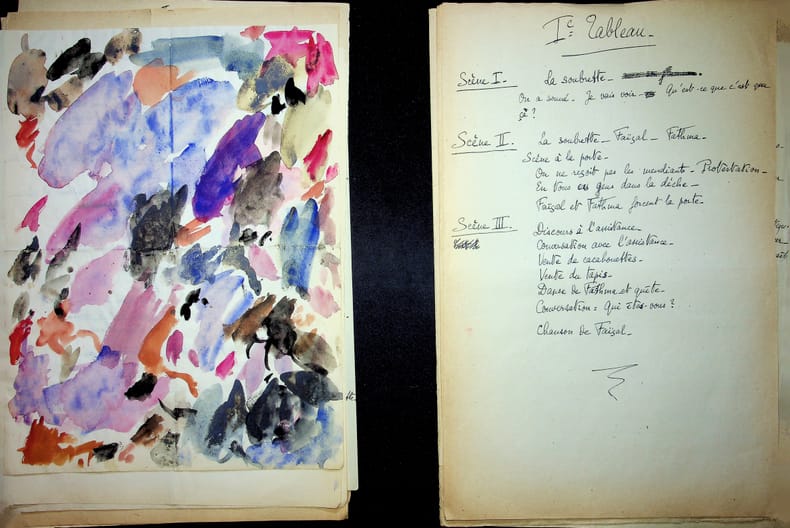 Ie Tableau.
Scène I. La soubrette.
On a sonné. Je vais voir. Qu'est-ce que c'est que
ça ?
Scène II. La soubrette - Faïzal - Fathma.
Scène à la porte.
On ne reçoit pas les mendiants. Protestation.
gens dans la dèche.
Faïzal et Fathma forcent la porte.
Scène III. Discours à l'assistance.
Conversation avec l'assistance.
Vente de cacahouettes.
Vente du tapis.
Danse de Fathma et quête.
Conversation : Qui êtes-vous ?
Chanson de Faïzal.